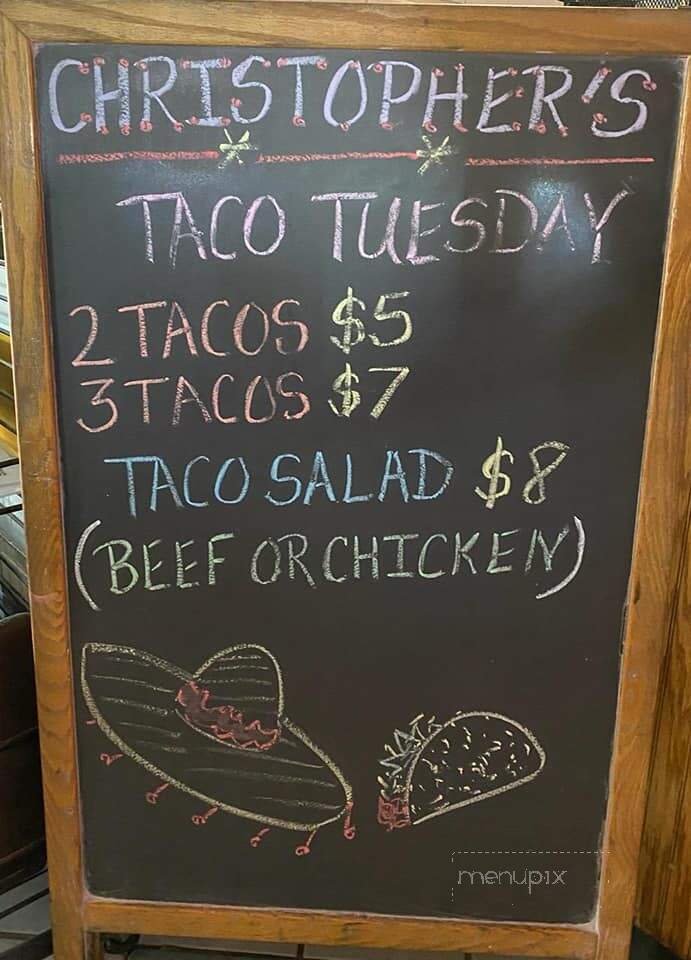 CHRISTOPHER'S
TACO TUESDAY
2 TACOS $5
3 TACOS $7
TACO SALAD $8
(BEEF OR CHICKEN)
menupix